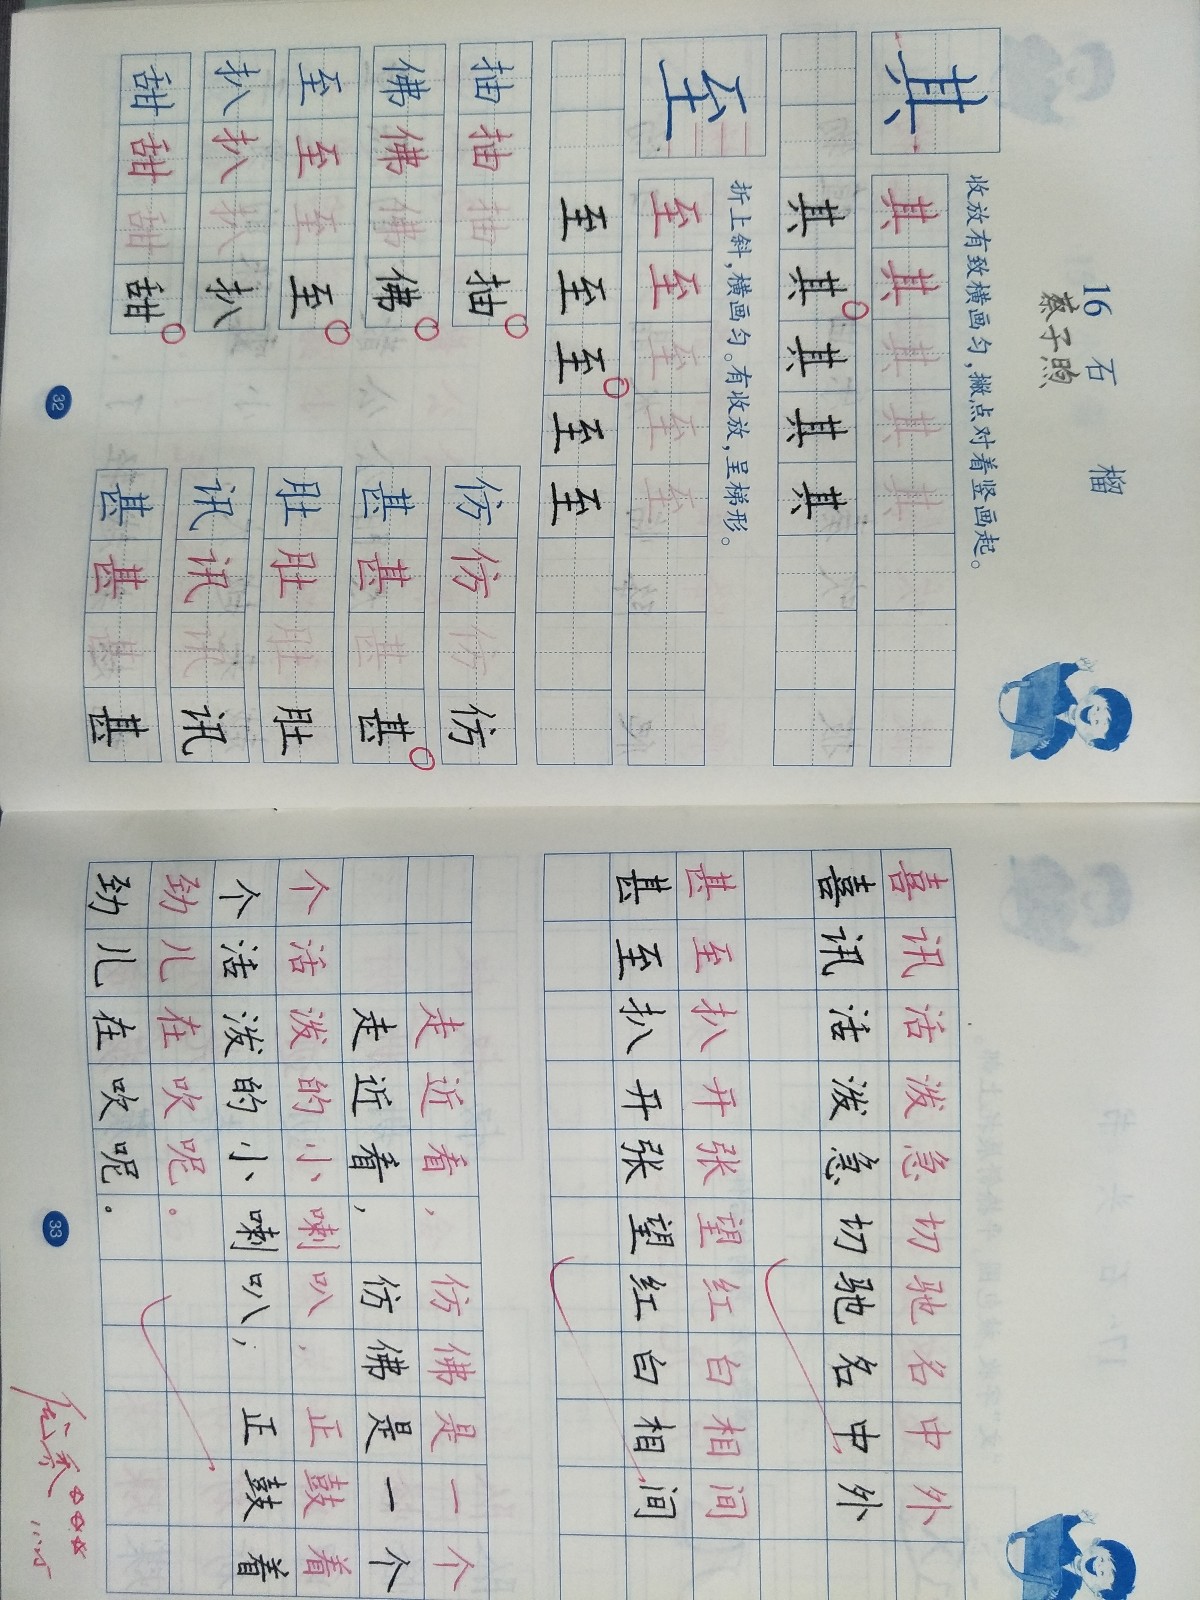 16 石 榴
蔡子煦
其 收放有致横画匀,撇点对着竖画起。
其 其 其 其 其
其 其 其 其 其
至 折上斜,横画匀。有收放,呈梯形。
至 至 至 至 至
至 至 至 至 至
抽 抽 抽 抽 仿 仿 仿 仿
佛 佛 佛 佛 甚 甚 甚 甚
至 至 至 至 肚 肚 肚 肚
扒 扒 扒 扒 讯 讯 讯 讯
甜 甜 甜 甜 甚 甚 甚 甚
32
喜讯活泼急切驰名中外
喜讯活泼急切驰名中外
甚至扒开张望红白相间
甚至扒开张望红白相间
走近看,仿佛是一个
走近看,仿佛是一个
个活泼的小喇叭,正鼓着
个活泼的小喇叭,正鼓着
劲儿在吹呢。
劲儿在吹呢。
33